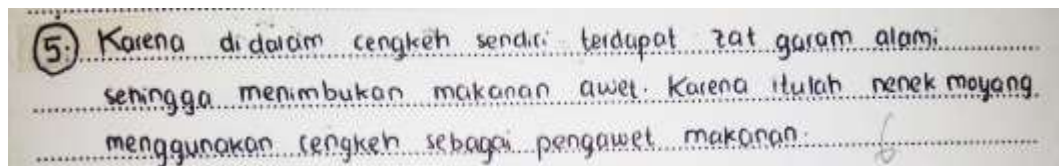 5. Karena didalam cengkeh sendiri terdapat zat garam alami
sehingga menimbukan makanan awet. Karena itulah nenek moyang
menggunakan cengkeh sebagai pengawet makanan.
6